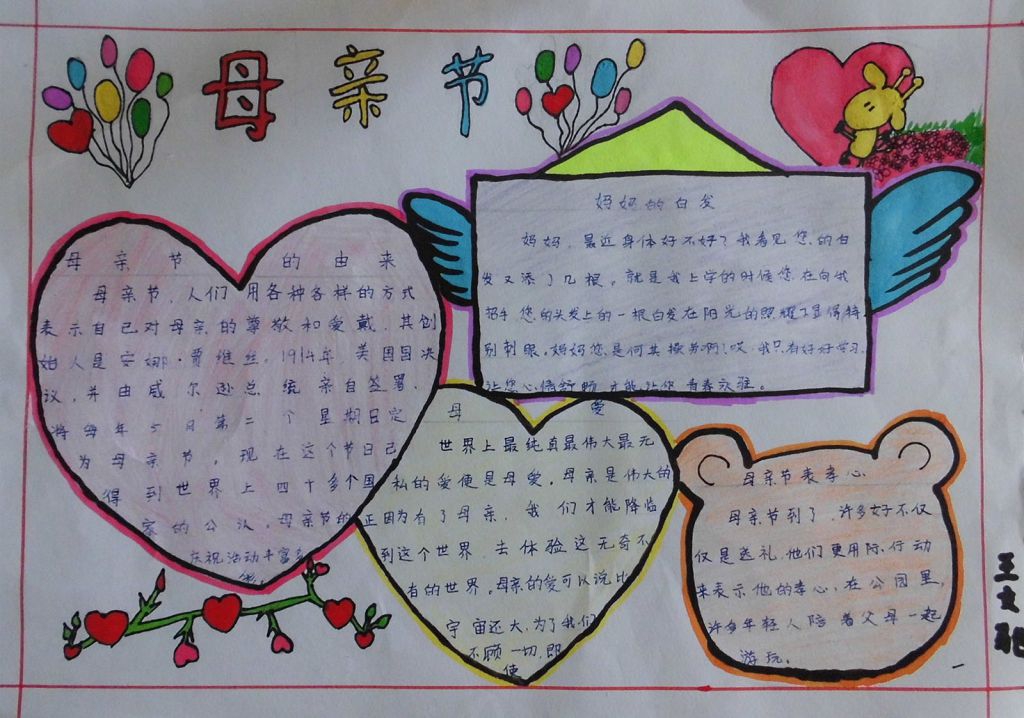 母亲节
母亲节的由来
母亲节,人们用各种各样的方式
表示自己对母亲的尊敬和爱戴,其创
始人是安娜·贾维丝。1914年,美国国决
议,并由威尔逊总统亲自签署,
将每年5月第二个星期日定
为母亲节。现在这个节日已
得到世界上四十多个国
家的公认。母亲节的
庆祝活动丰富多
妈妈的白发
妈妈,最近身体好不好?我看见您的白
发又添了几根。就是我上学的时候您在向我
招手您的头发上的一根白发在阳光的照耀下显得特
别刺眼。妈妈您是何其操劳啊!哎,我只有好好学习,
让您心情舒畅才能让您青春永驻。
母爱
世界上最纯真最伟大最无
私的爱便是母爱。母亲是伟大的
正因为有了母亲,我们才能降临
到这个世界,去体验这无奇不
有的世界。母亲的爱可以说比
宇宙还大,为了我们
不顾一切,即
使
母亲节表孝心
母亲节到了,许多好不仅
仅是送礼,他们更用际行动
来表示他的孝心,在公园里,
许多年轻人陪着父母一起
游玩。
王文